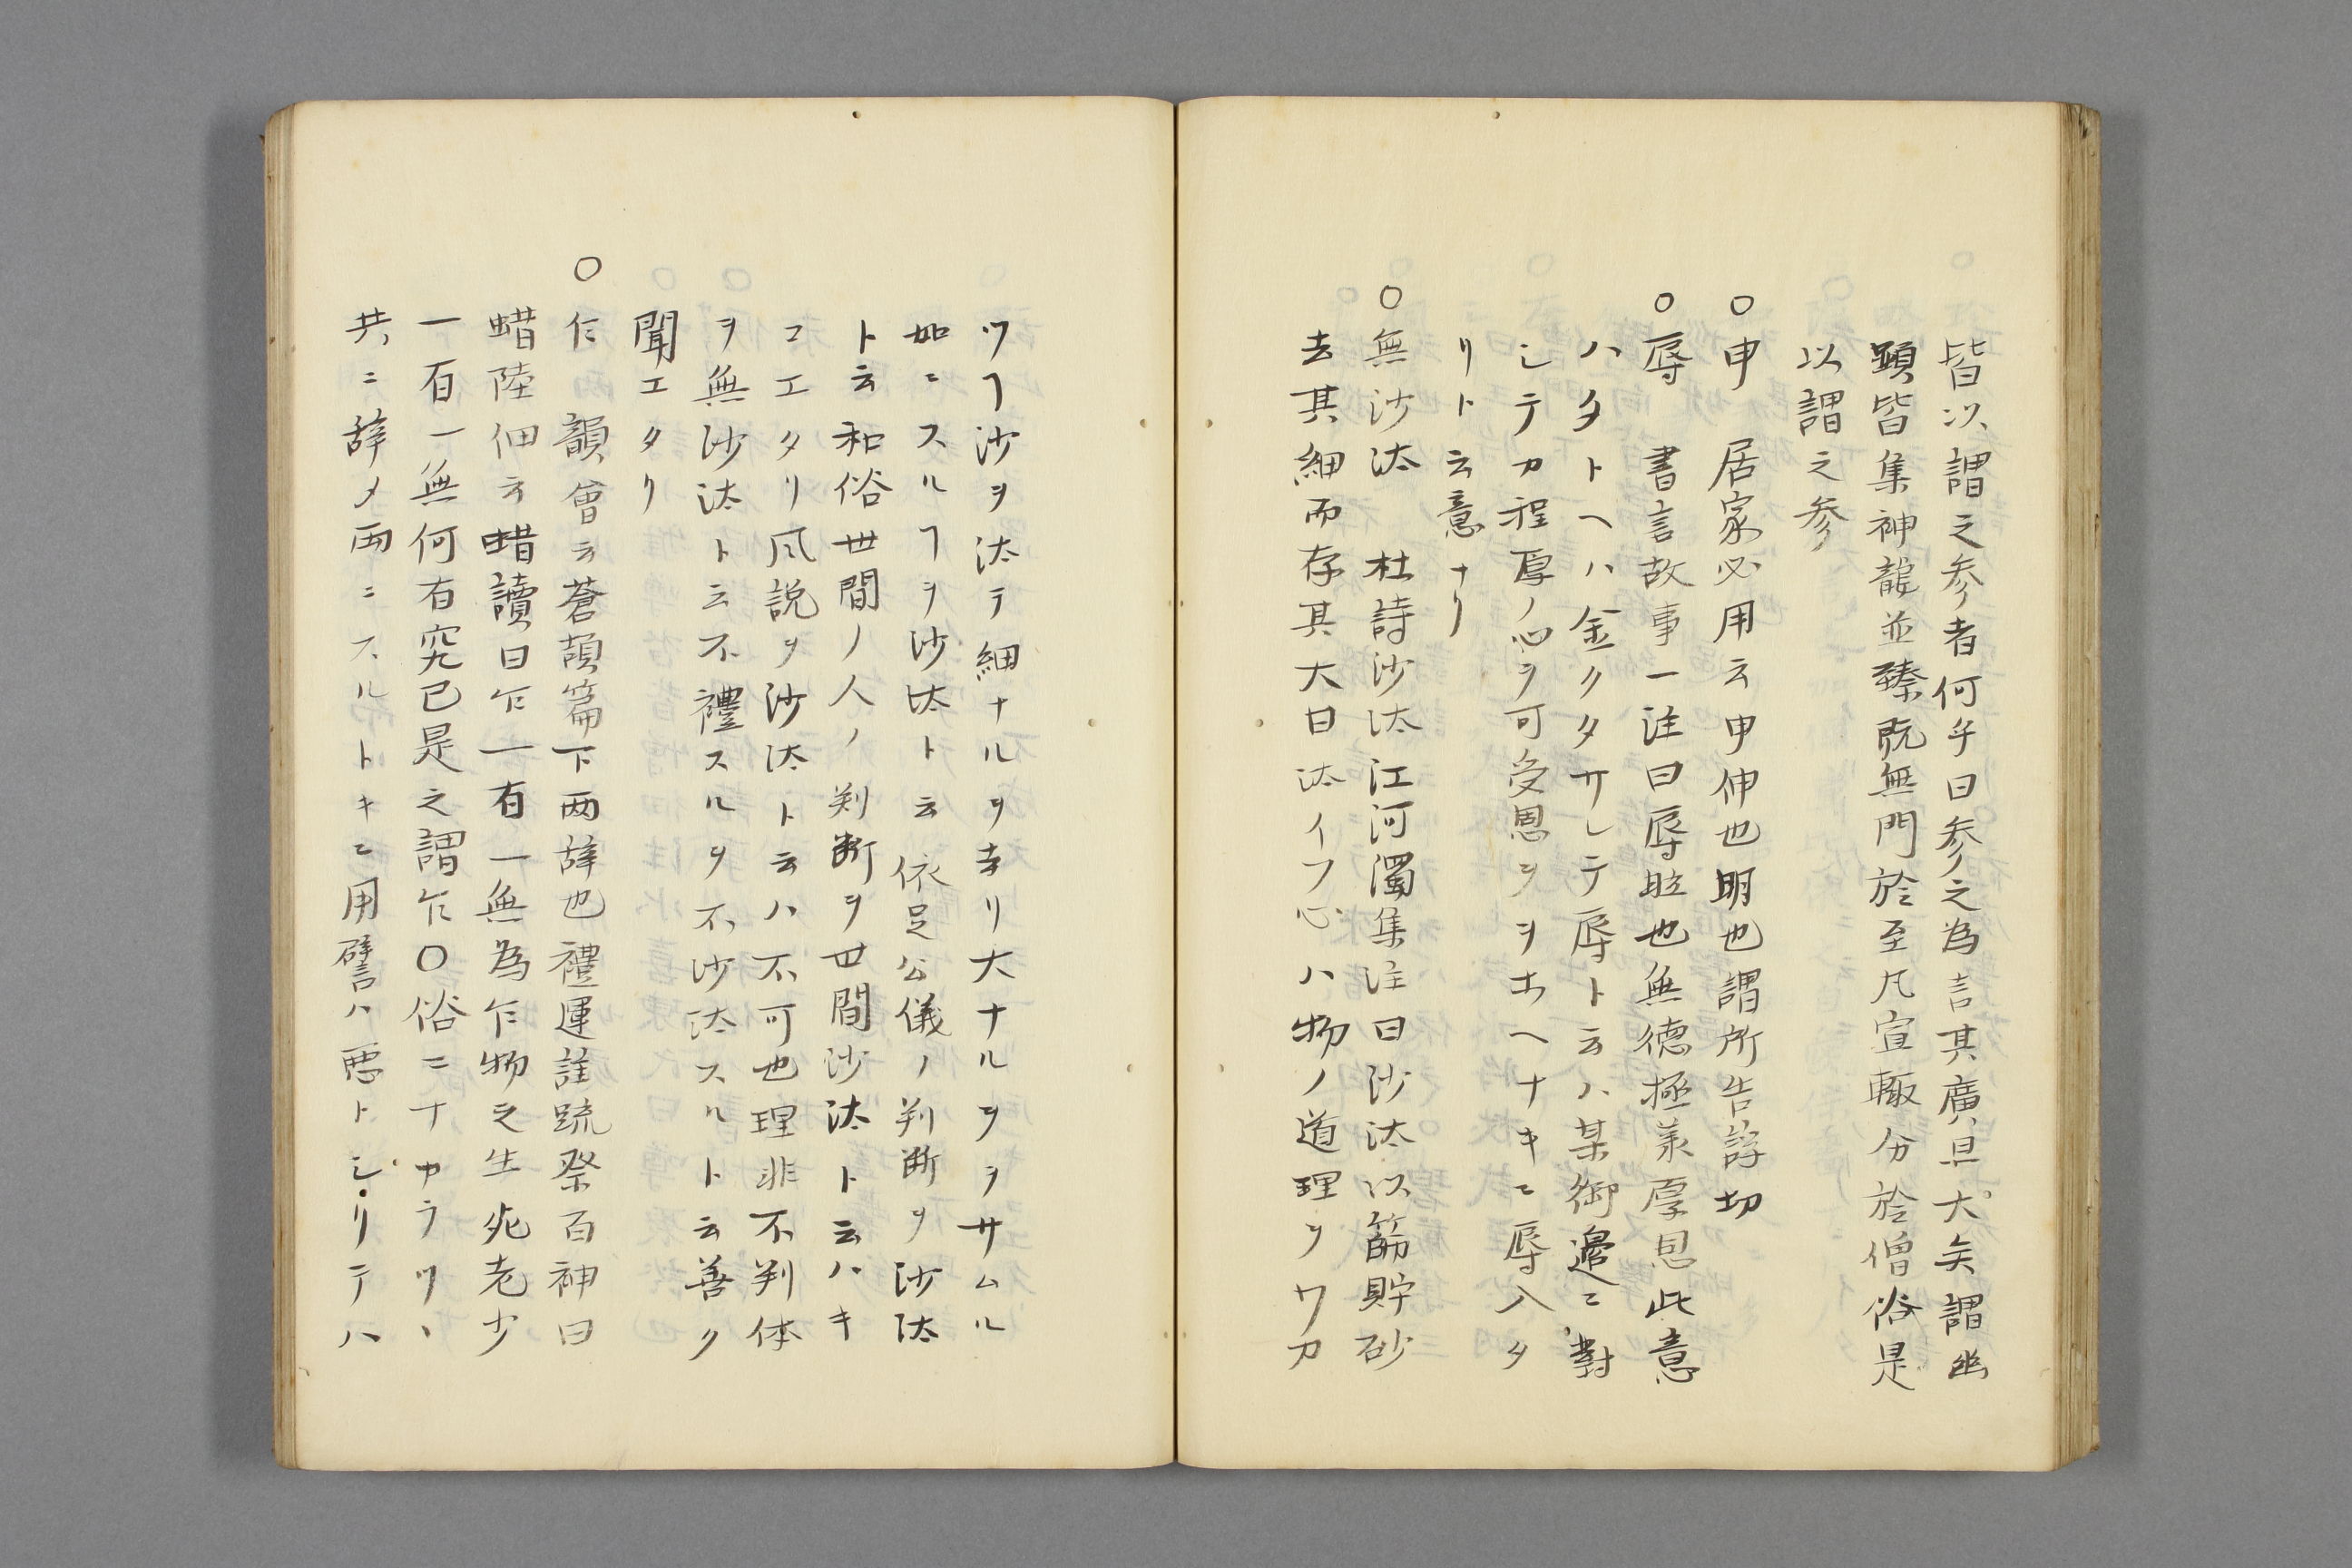 皆以謂之参者何乎曰参之為言其廣且大矣謂幽
顕皆集神龍並臻既無門於至凡宣輙分於僧俗是
以謂之参
○申　居家必用云申伸也明也謂所告詳切
○辱　書言故事一注曰辱眐也無德極羕厚恩此意
ハタトヘハ金クタサレテ辱ト云ハ某御邉ニ對
シテカ程厚ノ心ヲ可受恩ヲヲホヘナキニ辱入タ
リト云意ナリ
○無沙汰　杜詩沙汰江河濁集注曰沙汰以篩貯砂
去其細而存其大曰汰イフ心ハ物ノ道理ヲワカ
ツヿ沙ヲ汰テ細ナルヲ去リ大ナルヲヲサムル
如ニスルヿヲ沙汰ト云　依是公儀ノ判断ヲ沙汰
ト云和俗世間ノ人ノ判断ヲ世間沙汰ト云ハキ
コエタリ風説ヲ沙汰ト云ハ不可也理非不判体
ヲ無沙汰ト云不禮スルヲ不沙汰スルト云善ク
聞エタリ
○乍　韻會云蒼頡篇下両辞也禮運註䟽祭百神曰
蜡陸佃云蜡讀曰乍一有一無為乍物之生死老少
一百一無何有究已是之謂乍○俗ニナカラツヽ
共ニ辞メ両ニスルトキニ用譬ハ悪トシリテハ